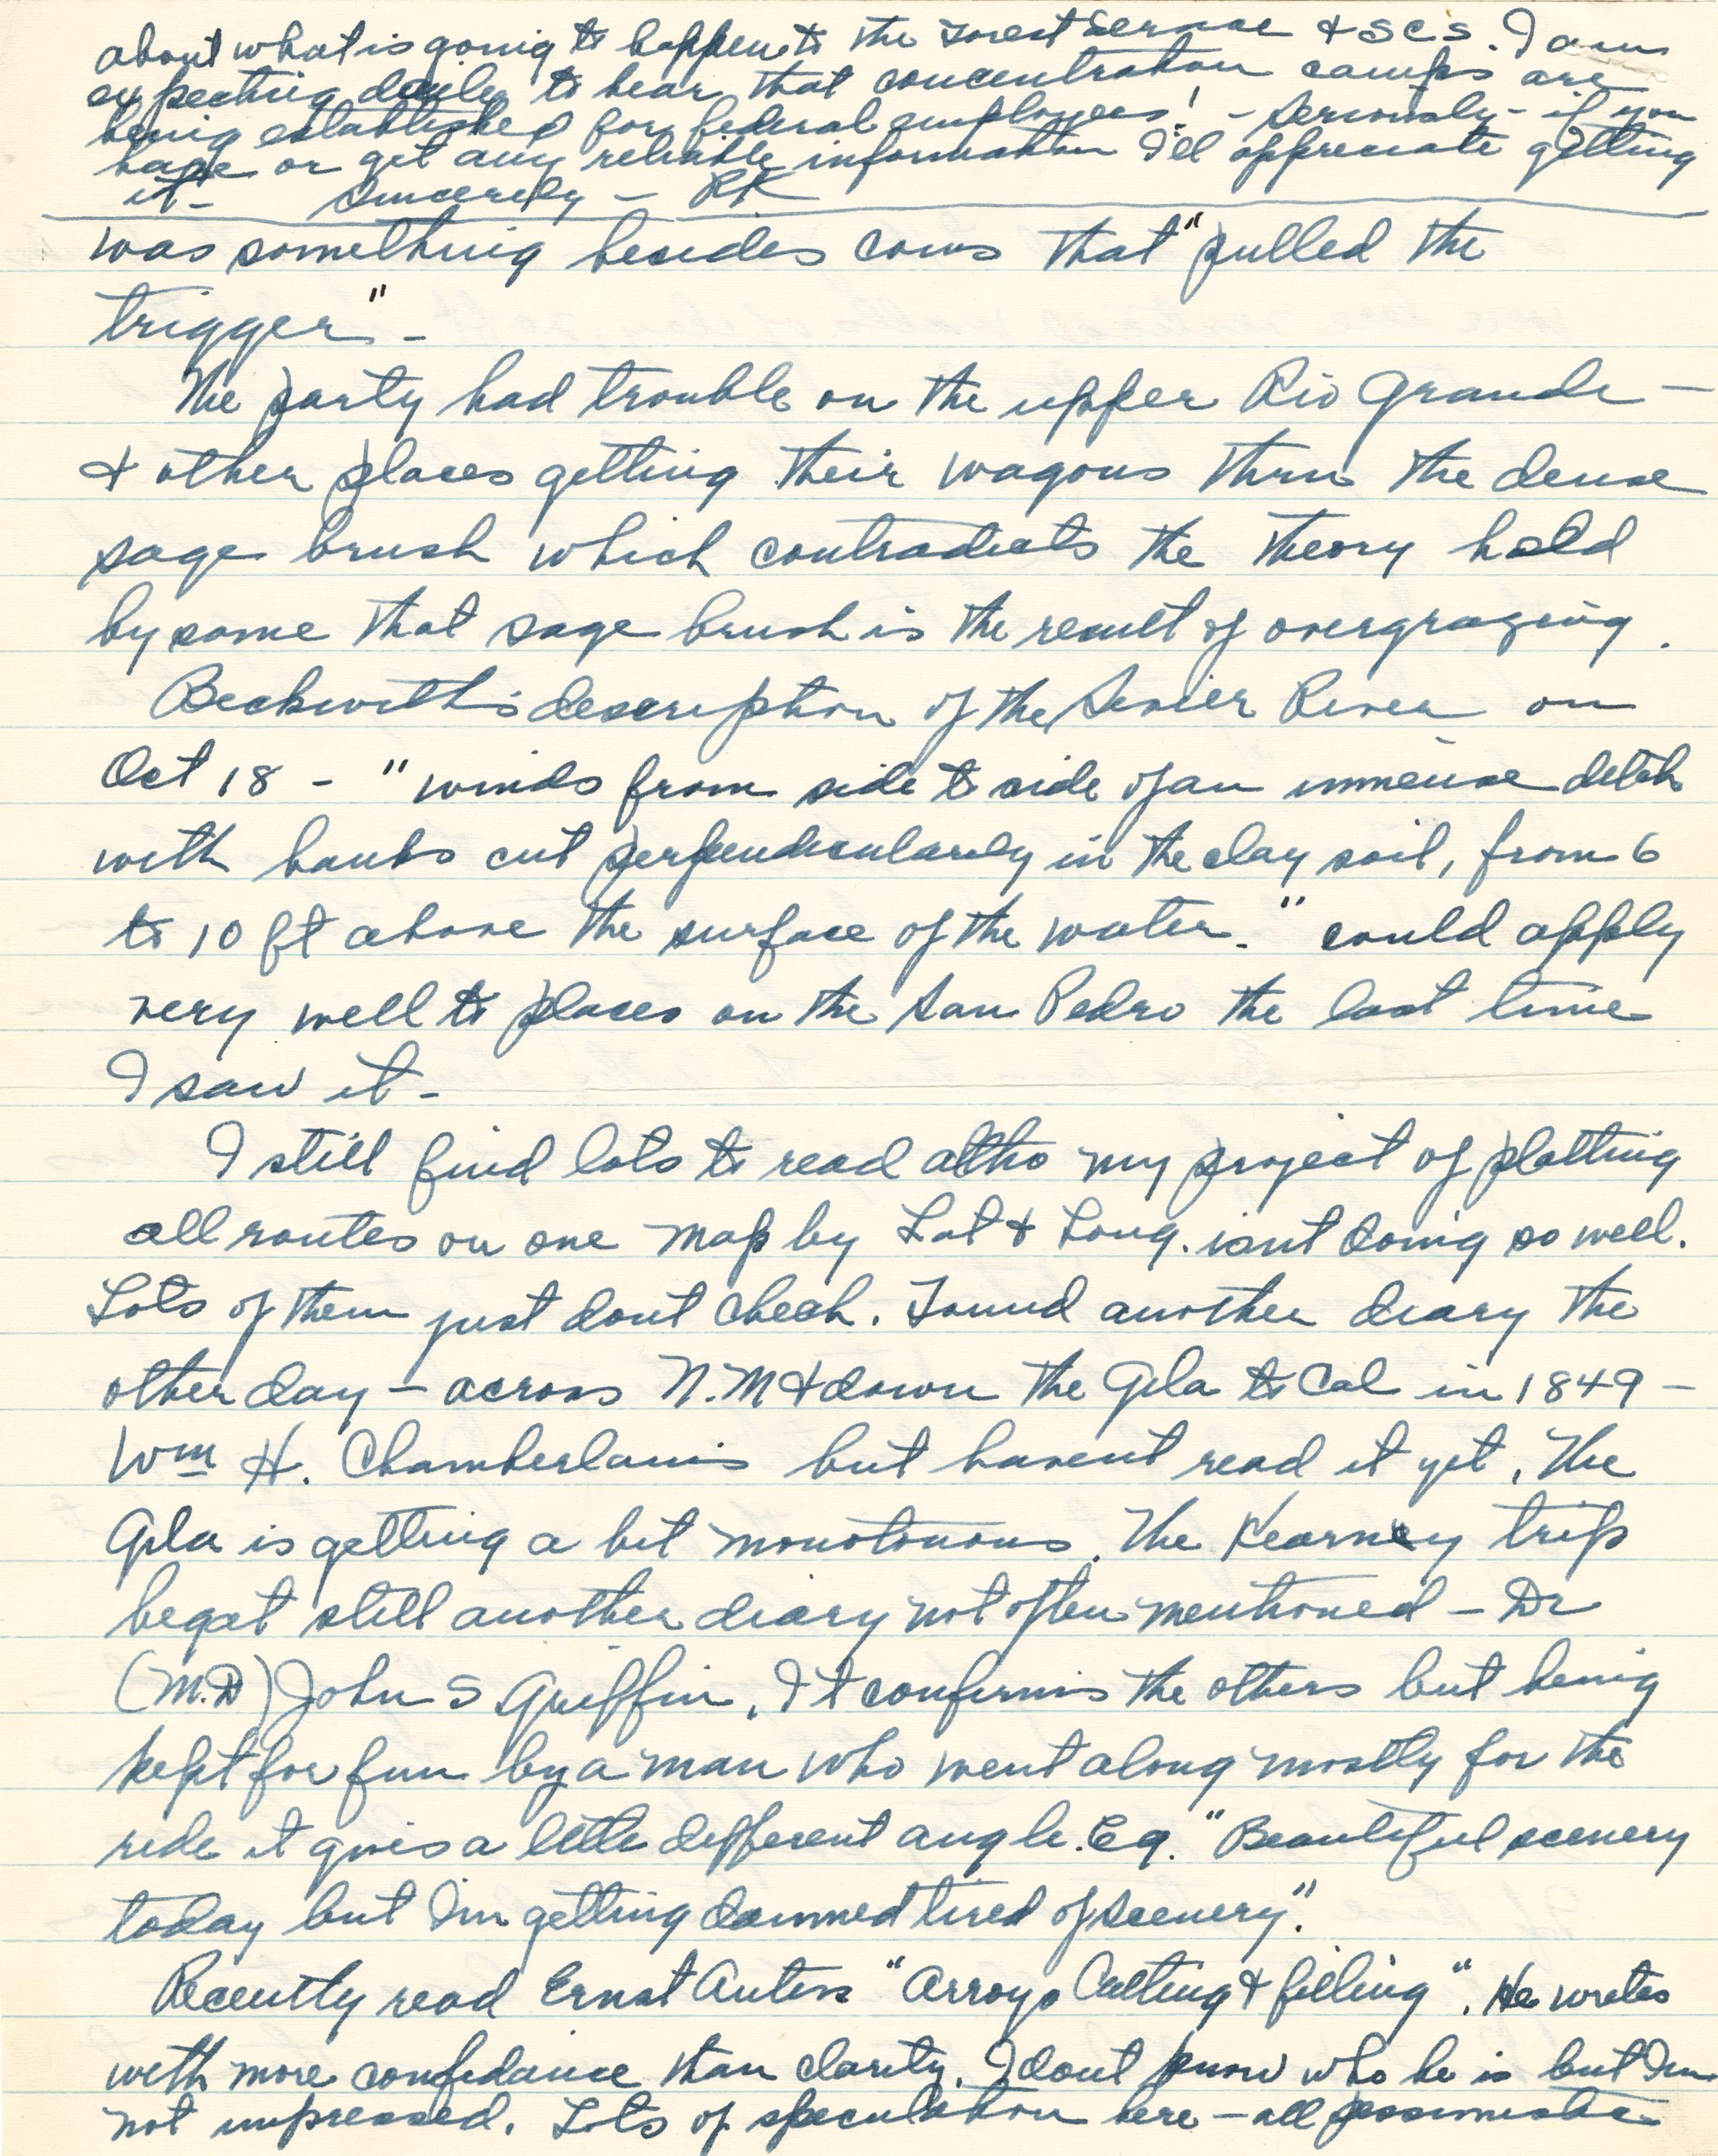 about what is going to happen to the Forest Service & SCS. I am
expecting daily to hear that concentration camps are
being established for federal employees! - Seriously - if you
have or get any reliable information I'll appreciate getting
it - Sincerely - RK
was something besides cows that "pulled the
trigger" -
The party had trouble on the upper Rio Grande -
& other places getting their wagons thru the dense
sage brush which contradicts the theory held
by some that sage brush is the result of overgrazing.
Beckwith's description of the Sevier River on
Oct 18 - "winds from side to side of an immense ditch
with banks cut perpendicularly in the clay soil, from 6
to 10 ft above the surface of the water." could apply
very well to places on the San Pedro the last time
I saw it -
I still find lots to read altho my project of plotting
all routes on one map by Lat & Long. isnt doing so well.
Lots of them just dont check. Found another diary the
other day - across N.M & down the Gila to Cal in 1849 -
Wm H. Chamberlains but havent read it yet. The
Gila is getting a bit monotonous. The Kearney trip
begat still another diary not often mentioned - Dr
(M.D) John S Griffin. It confirms the others but being
kept for fun by a man who went along mostly for the
ride it gives a little different angle. Eg. "Beautiful scenery
today but I'm getting dammed tired of scenery".
Recently read Ernst Antevs "Arroyo Cutting & filling". He writes
with more confidance than clarity. I dont know who he is but I'm
not impressed. Lots of speculation here - all pessimistic